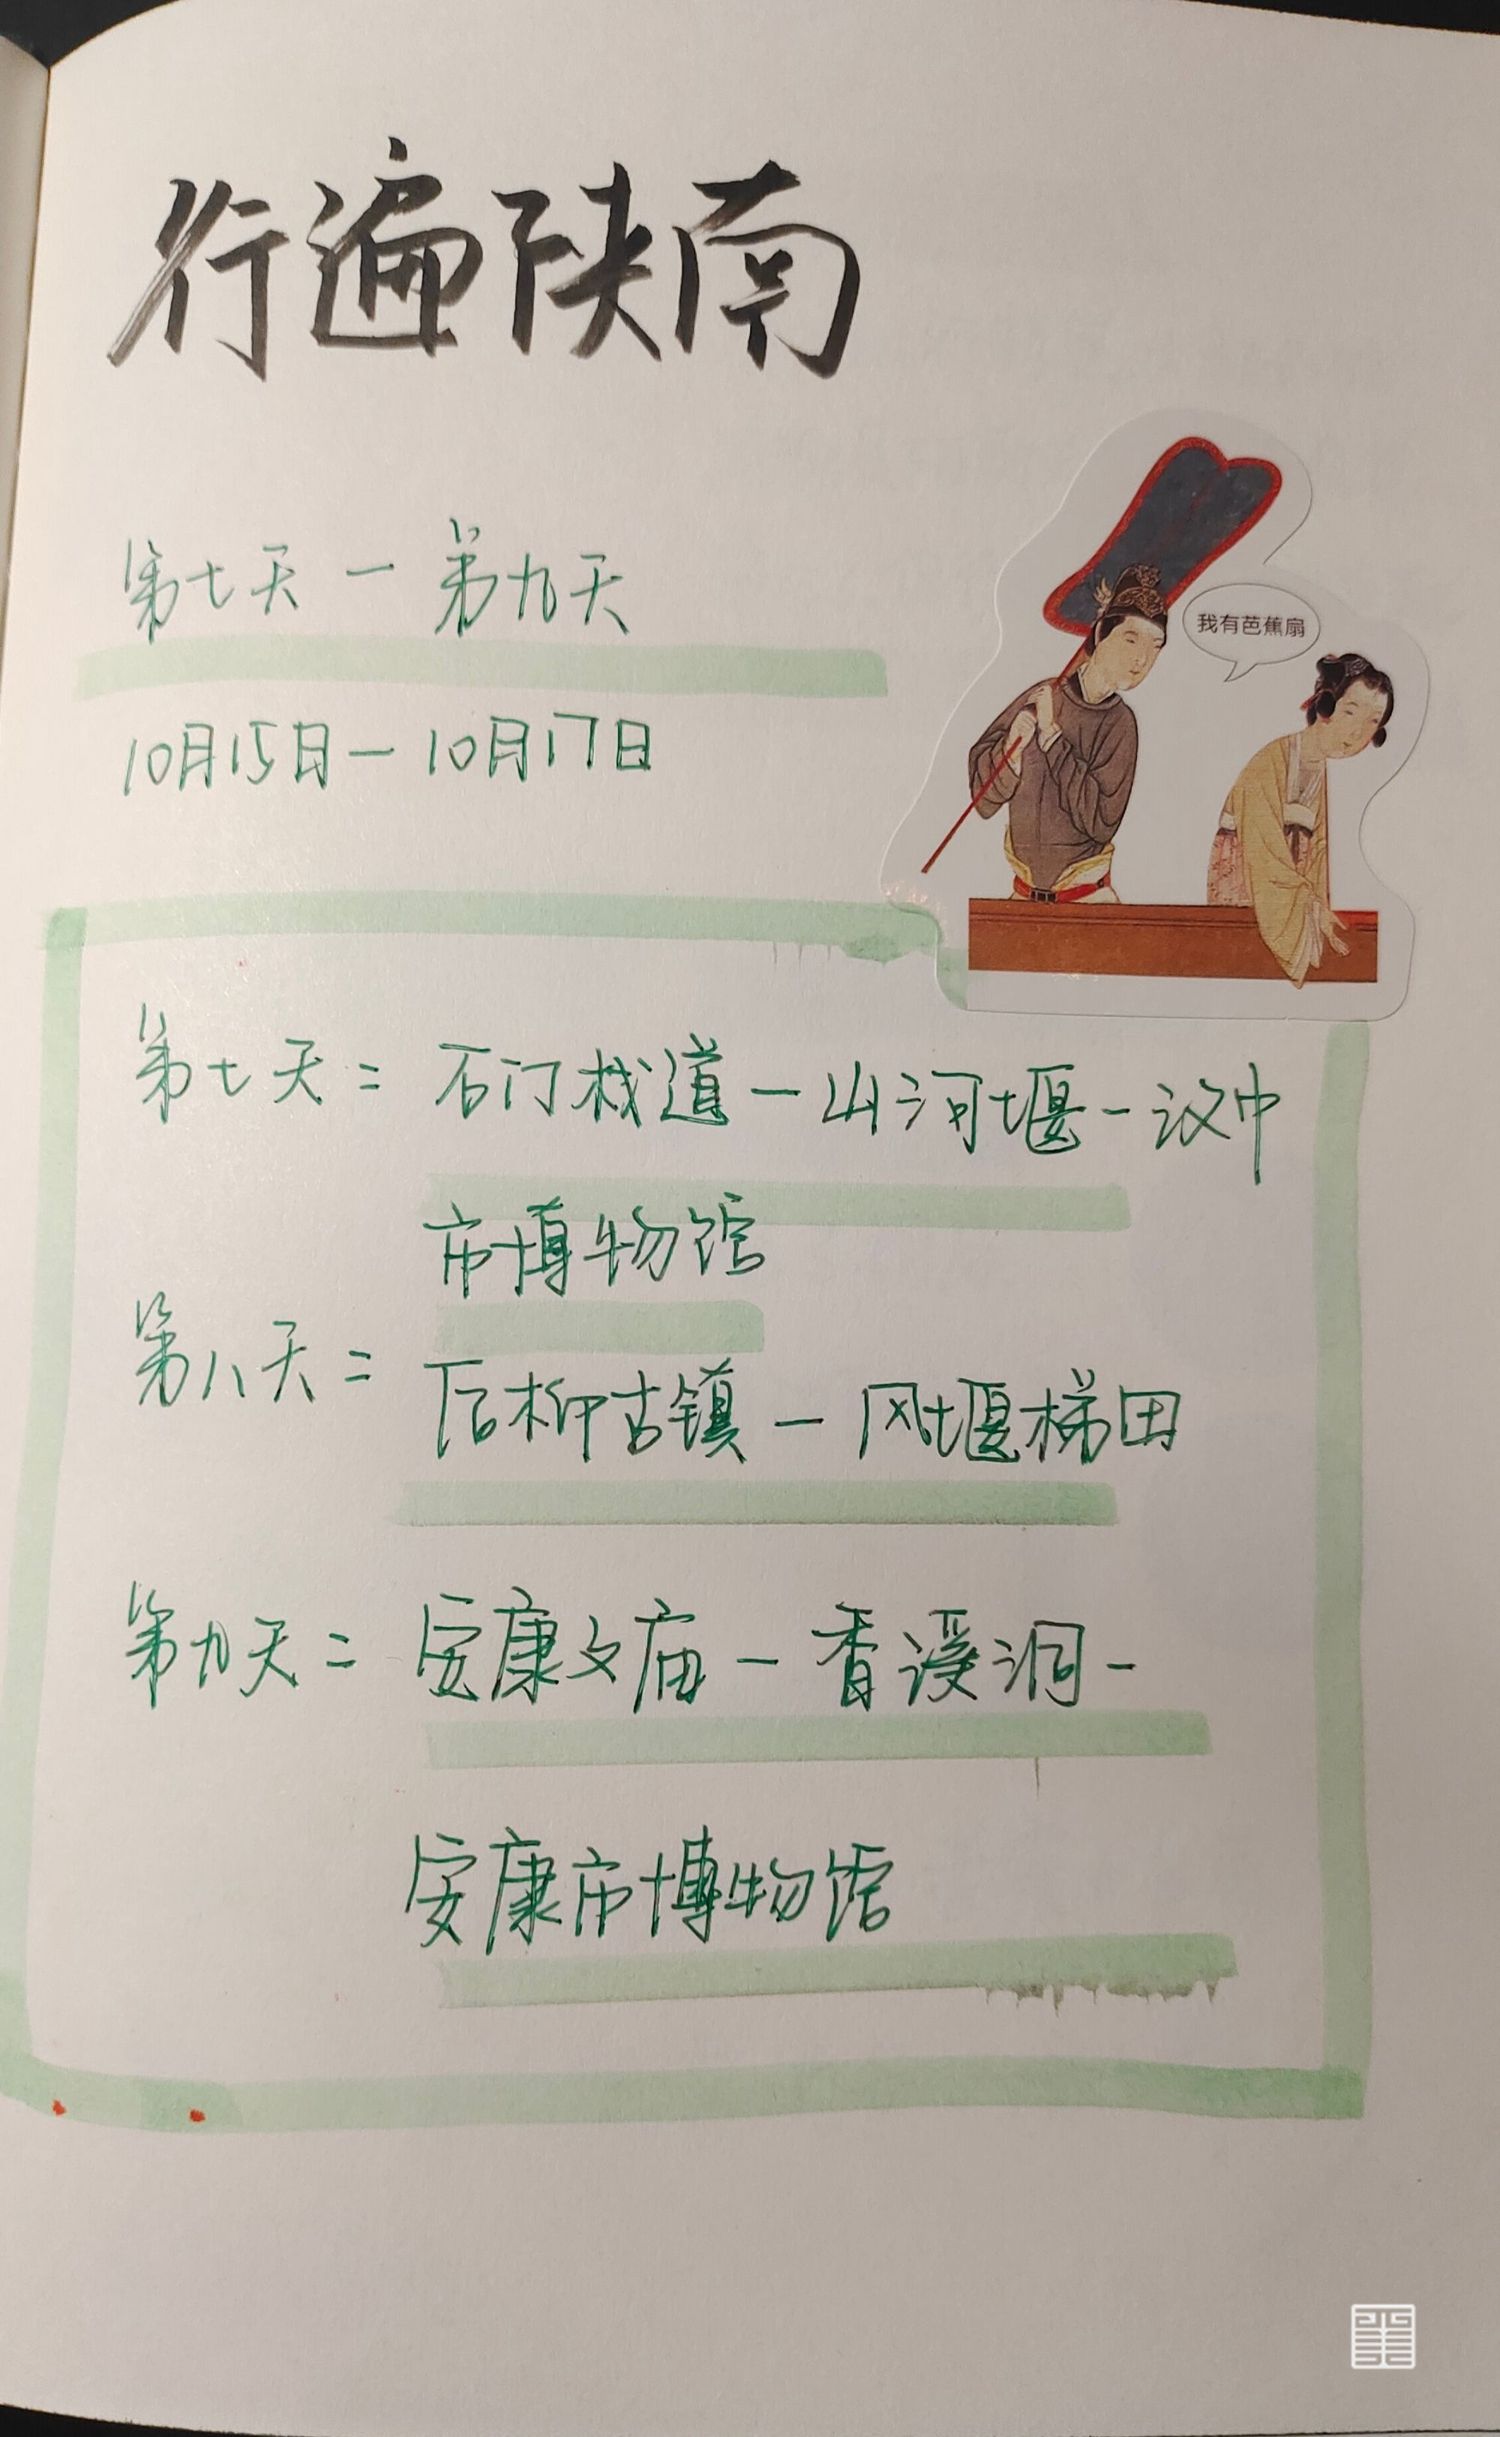 行遍陕南
第七天－第九天
我有芭蕉扇
10月15日－10月17日
第七天：石门栈道－山河堰－汉中
市博物馆
第八天：后柳古镇－凤堰梯田
第九天：安康文庙－香溪洞－
安康市博物馆